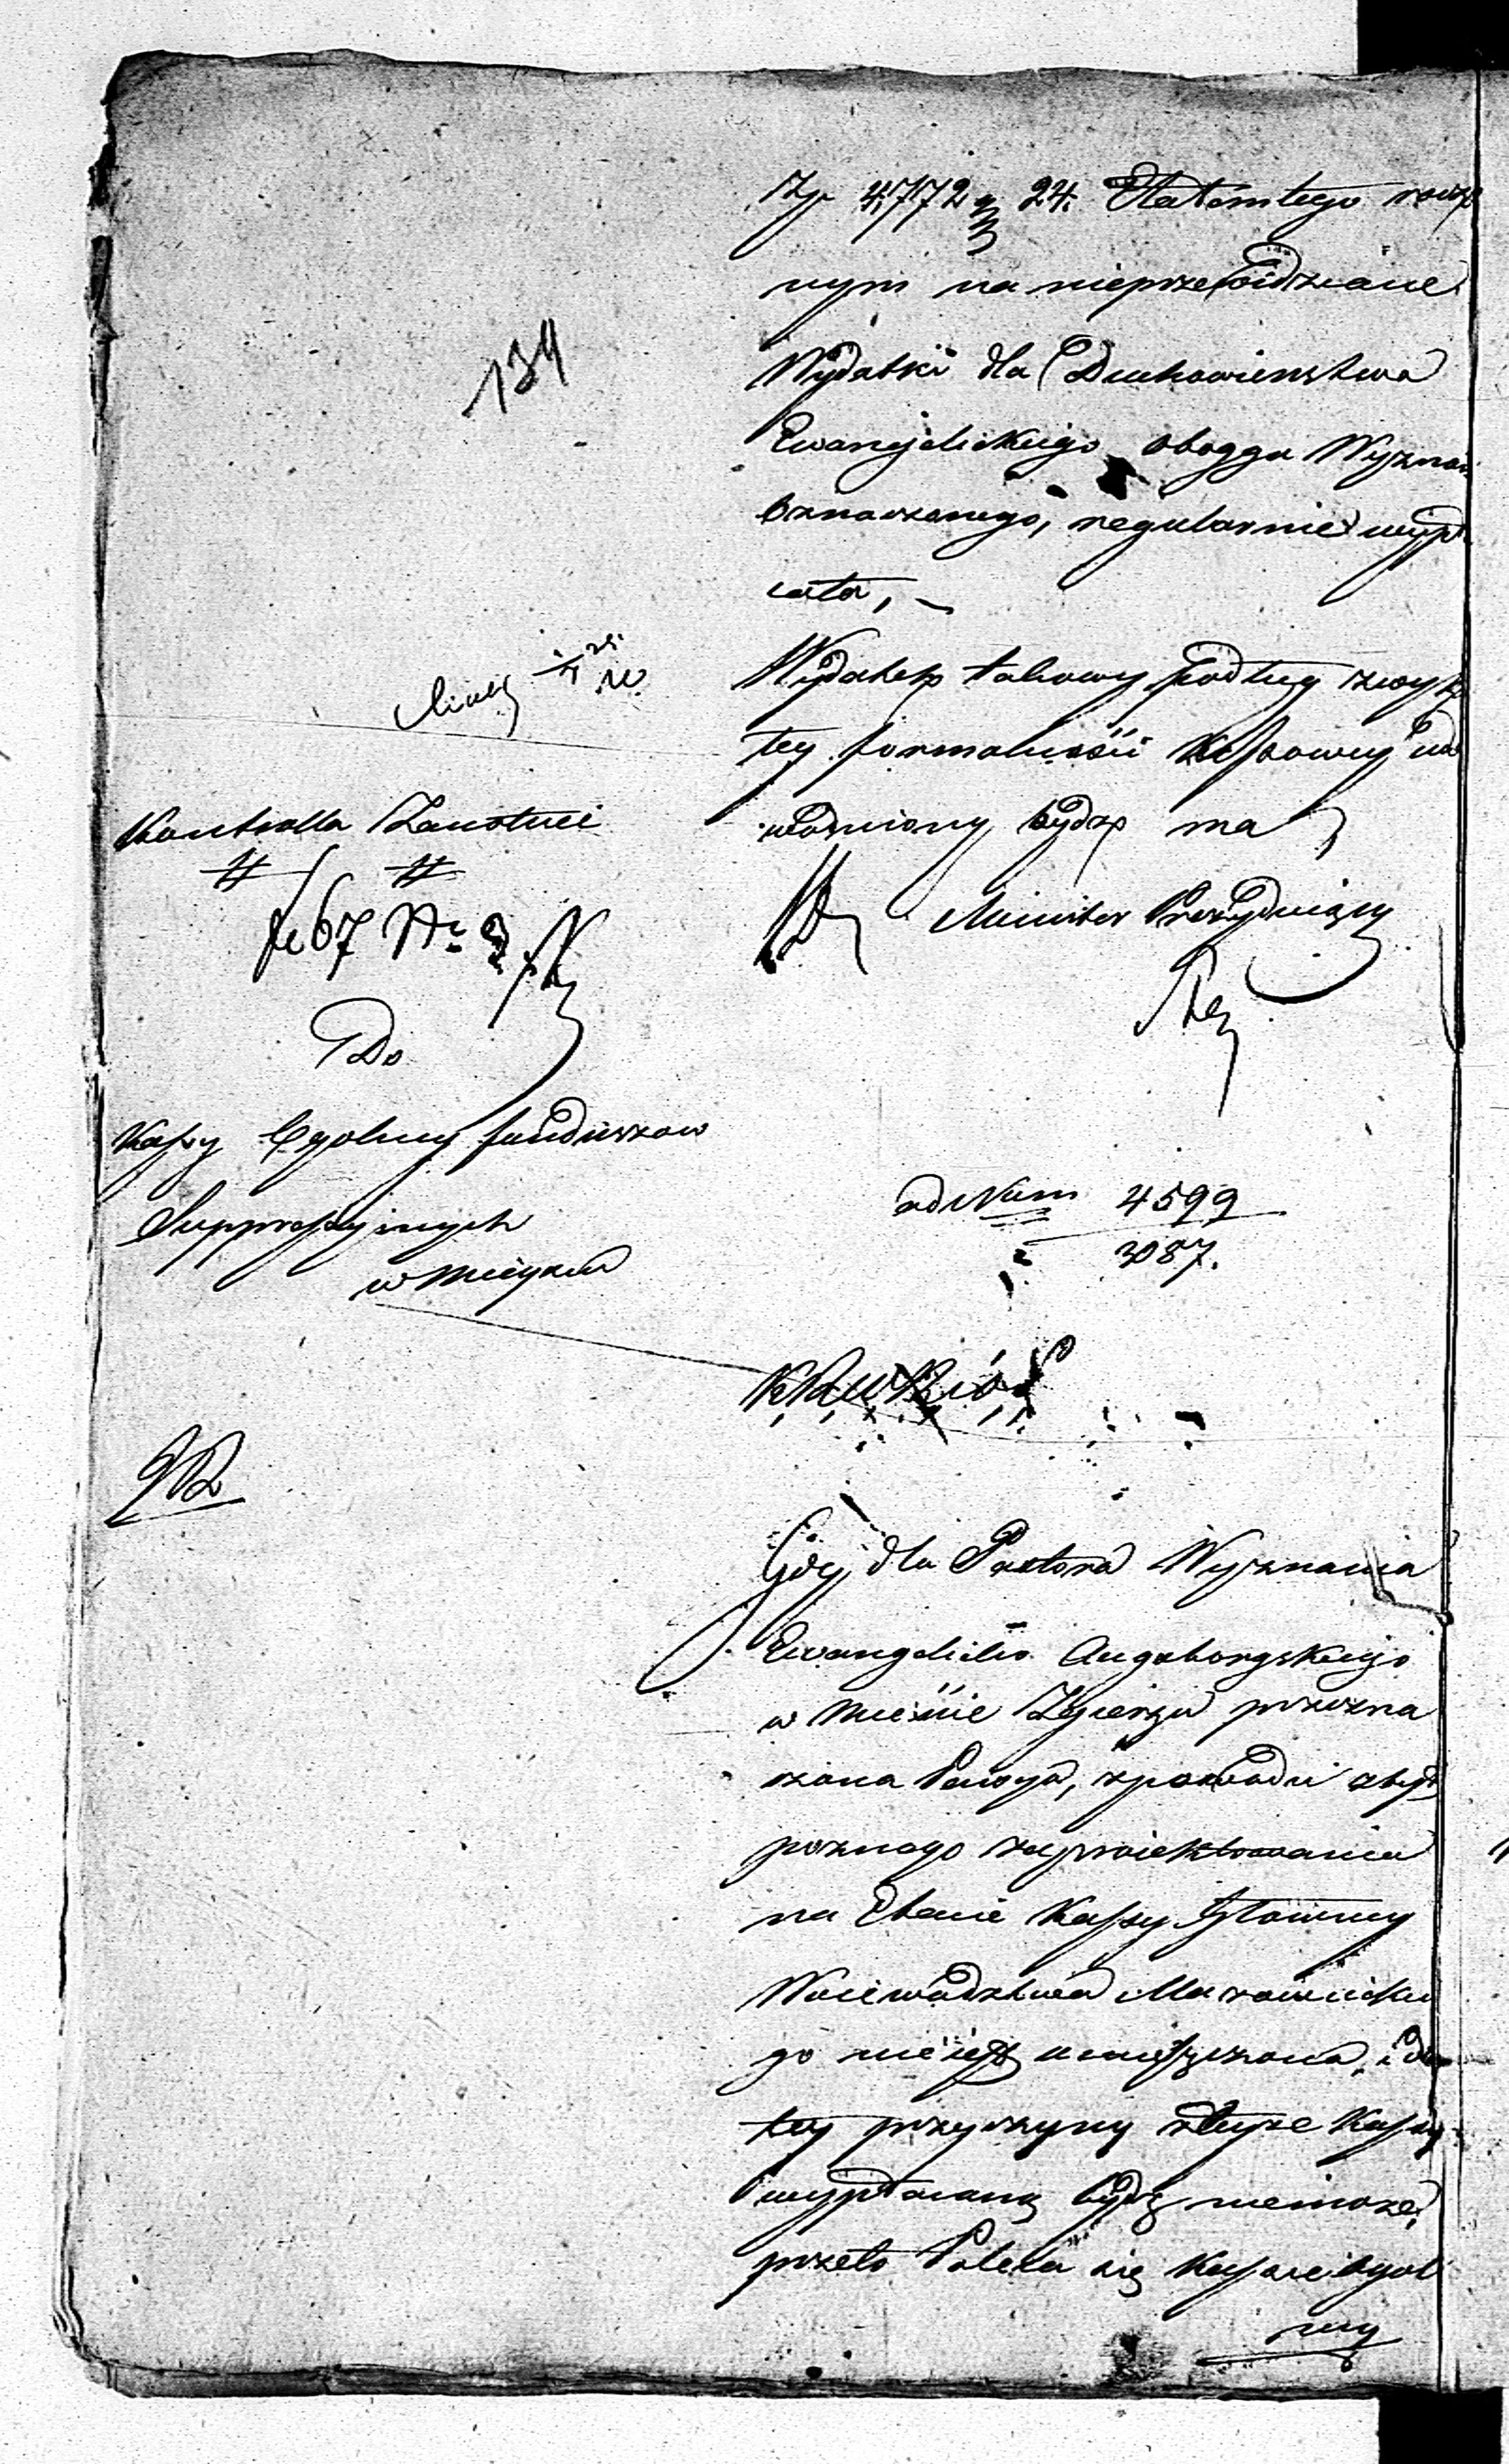 Złp 4,772 g 24. Etatem tego rocz
nym na nieprzewidziane
Wydatki dla Duchowienstwa
Ewangelickiego oboyga Wyznań
oznaczonego, regularnie wypł
cała, —
134
Wydatek takowy podług zwyk
łey formalności Kassowey ud
wodniony bydz ma
Minister Prezyduiący
Kontrolla Zanotuie
fo 67 Nr 2
Do
Kassy Ogolney funduszow
Suppressyinych
w Mieyscu
ad Num 4599
3087.
Gdy dla Pastora Wyznania
Ewangelicko Augsburgskiego
w Mieście Zgierzu przezna
czona Pensya, z powodu zbyt
poznego zaproiektowania
na Etacie Kassy Główney
Woiewództwa Mazowieckie
go nie iest umieszczona, i dla
tey przyczyny z teyże Kassy
wypłacaną bydź niemoże,
przeto Poleca się Kassie Ogol
ney